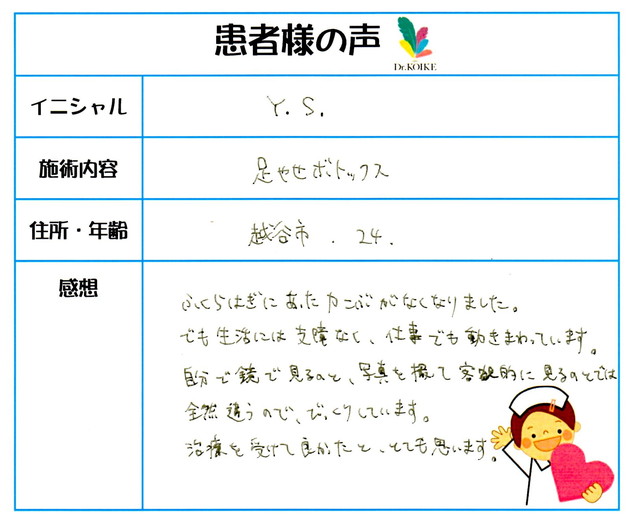 患者様の声
Dr.KOIKE
イニシャル
Y. S.
施術内容
足やせボトックス
住所・年齢
越谷市 . 24.
感想
ふくらはぎにあった力こぶがなくなりました。
でも生活には支障なく、仕事でも動きまわっています。
自分で鏡で見るのと、写真を撮って客観的に見るのとでは
全然違うので、びっくりしています。
治療を受けて良かったと、とても思います。